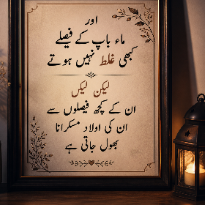 اور
ماء باپ کے فیصلے
کبھی غلط نہیں ہوتے
لیکن لیکں
ان کے کچھ فیصلوں سے
ان کی اولاد مسکرانا
بھول جاتی ہے